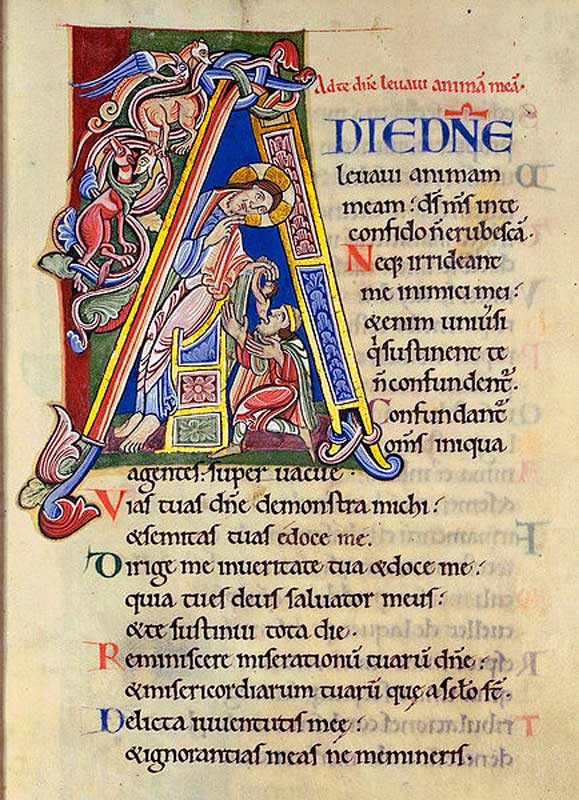 Ad te dn̄e leuaui animā meā.
AD TE DÑE
leuaui animam
meam: dš mš in te
confido n̄ erubescā.
Neq; irrideant
me inimici mei:
&enim uniūsi
q̄ sustinent te
n̄ confundent̄.
Confundant̄
om̄s iniqua
agentes: super uacue
Vias tuas dn̄e demonstra michi:
& semitas tuas edoce me.
Dirige me in ueritate tua & doce me:
quia tu es deus saluator meus:
& te sustinui tota die.
Reminiscere miserationū tuarū dn̄e:
& misericordiarum tuarū que a sełо st̄.
Delicta iuuentutis mee:
& ignorantias meas ne memineris.